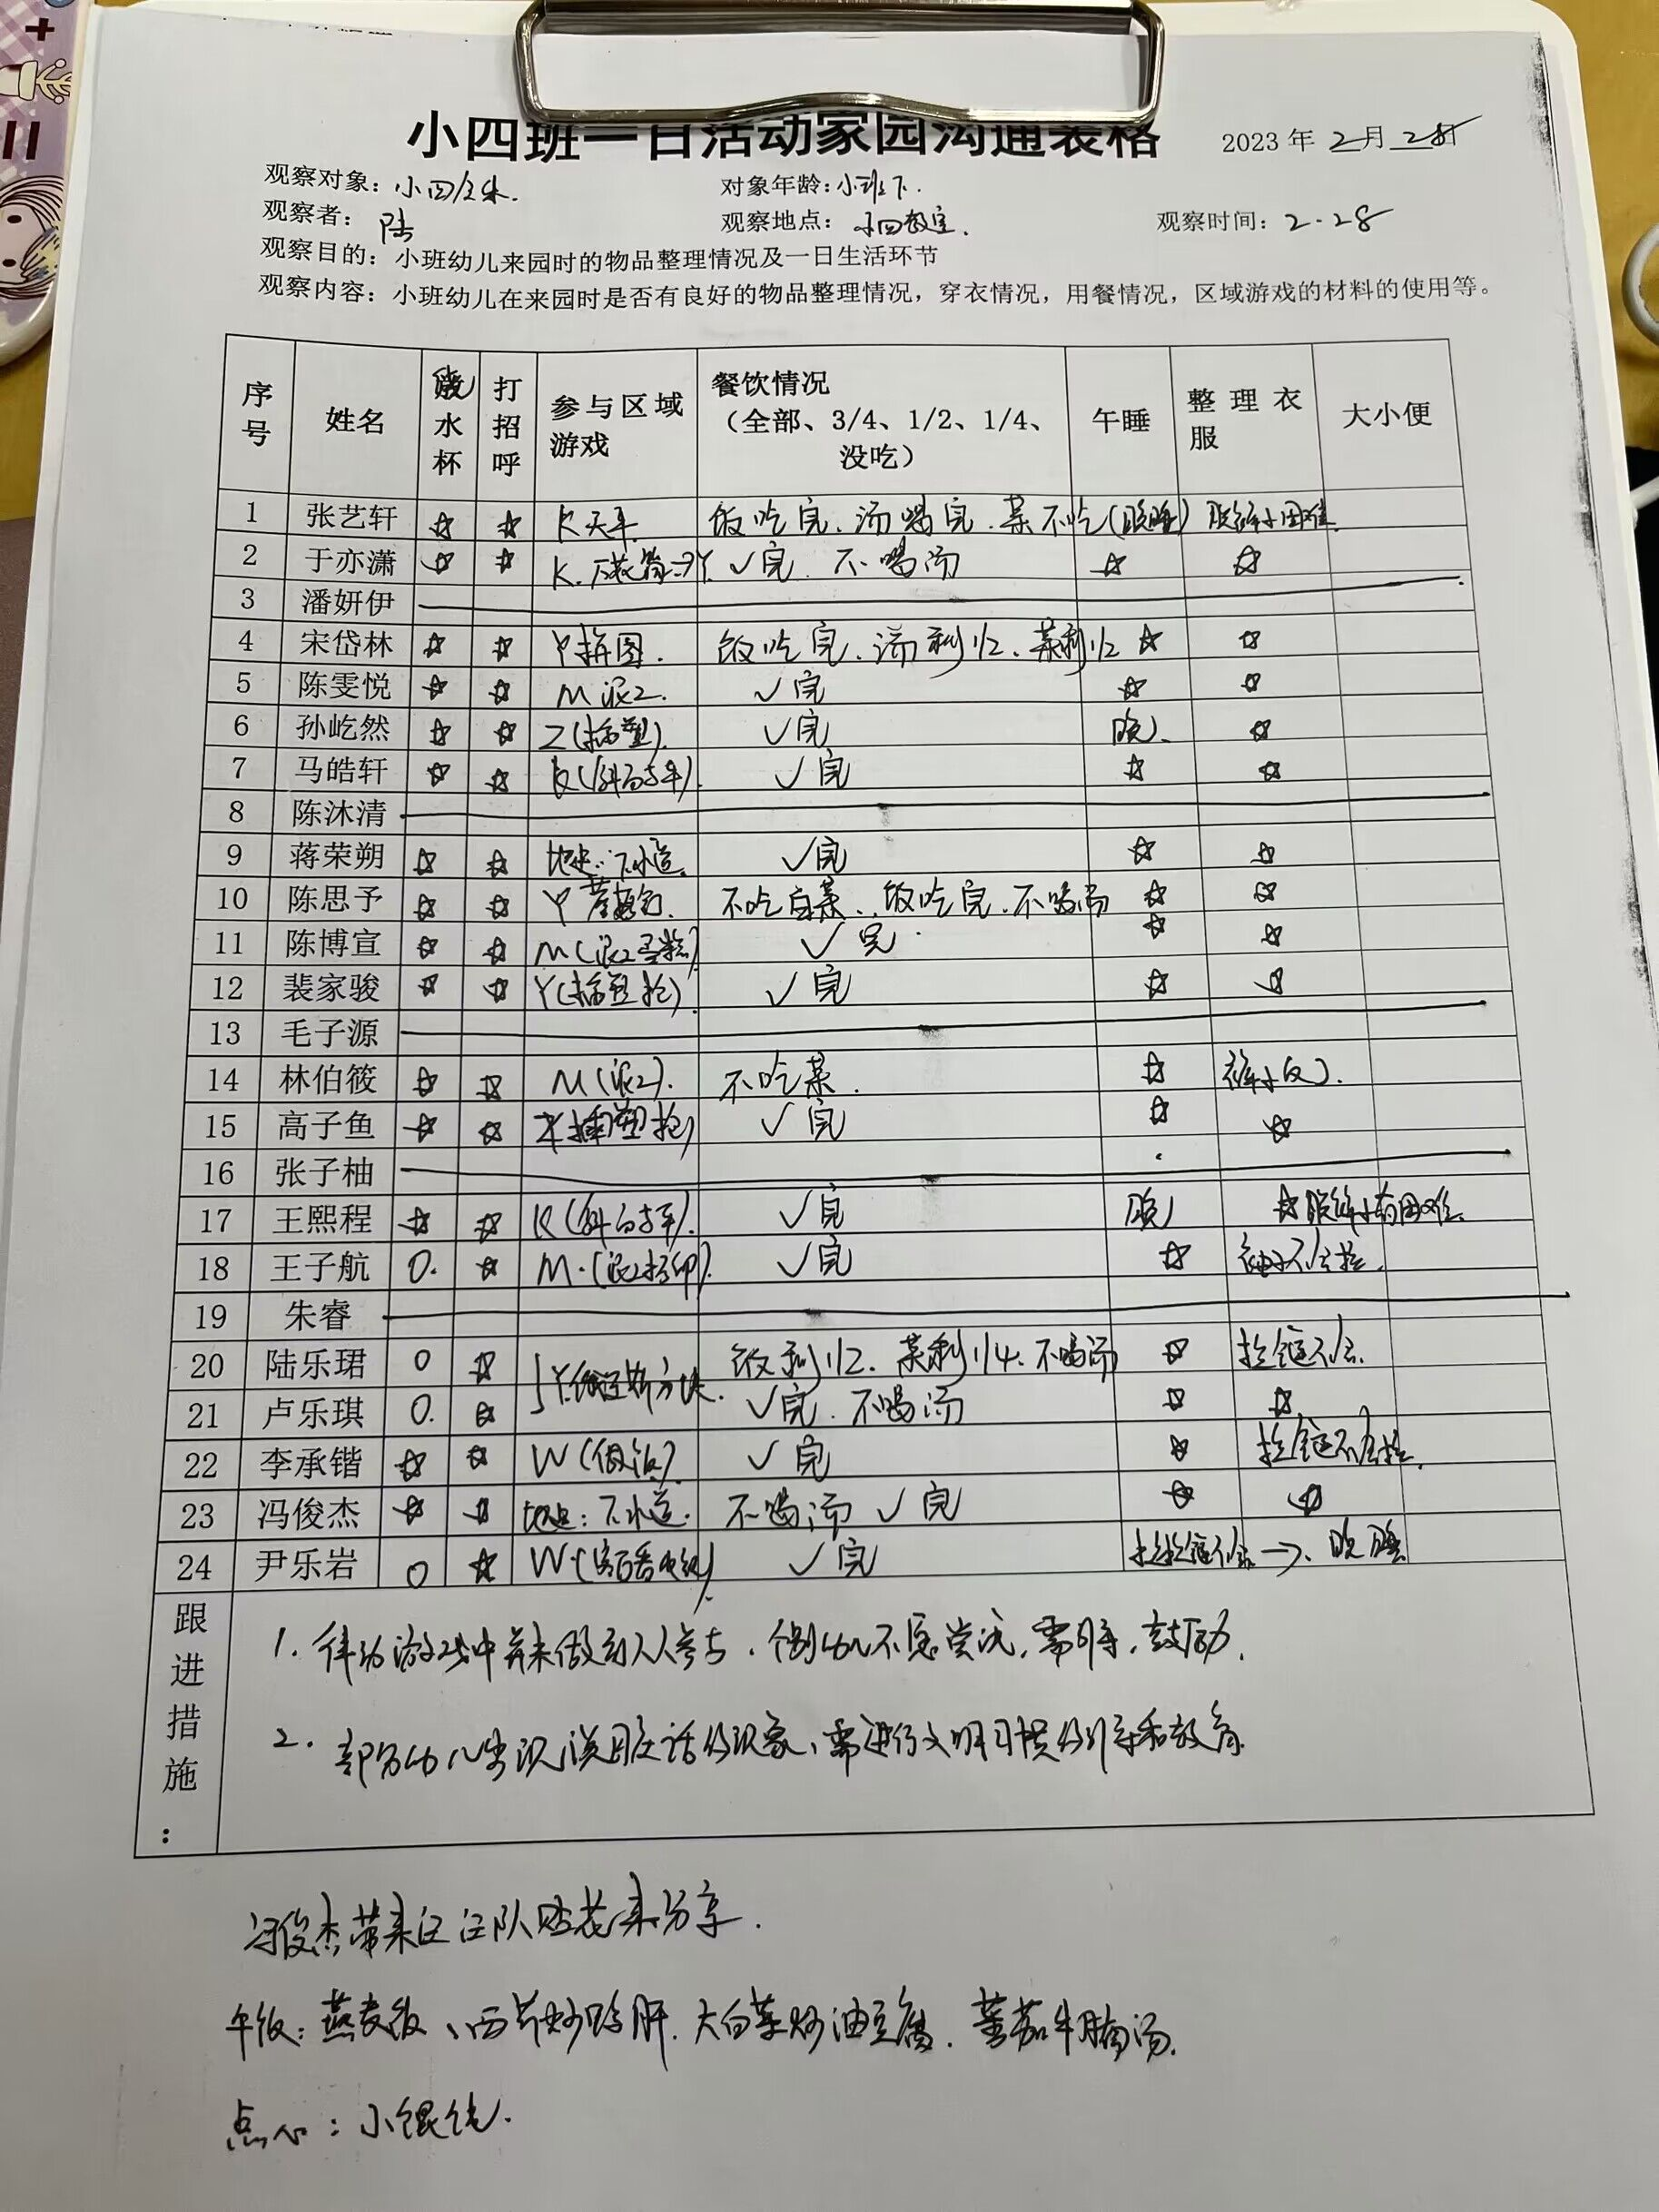 小四班一日活动家园沟通表格 2023年 2月 28日
观察对象：小四全体. 对象年龄：小班下.
观察者：陆 观察地点：小四教室. 观察时间：2.28
观察目的：小班幼儿来园时的物品整理情况及一日生活环节
观察内容：小班幼儿在来园时是否有良好的物品整理情况，穿衣情况，用餐情况，区域游戏的材料的使用等。
序号 姓名 水杯 打招呼 参与区域游戏 餐饮情况（全部、3/4、1/2、1/4、没吃） 午睡 整理衣服 大小便
1 张艺轩 ☆ ☆ K天平. 饭吃完.汤喝完.菜不吃(晚睡) 脱裤子困难.
2 于亦潇 ☆ ☆ K. ✓完. 不喝汤 ☆ ☆
3 潘妍伊
4 宋岱林 ☆ ☆ Y拼图. 饭吃完.汤剩1/2.菜剩1/2 ☆ ☆
5 陈雯悦 ☆ ☆ M泥工. ✓完 ☆ ☆
6 孙屹然 ☆ ☆ Z(插塑). ✓完 晚. ☆
7 马皓轩 ☆ ☆ K(斜向大车). ✓完 ☆ ☆
8 陈沐清
9 蒋荣朔 ☆ ☆ 地垫:下水道. ✓完 ☆ ☆
10 陈思予 ☆ ☆ Y 不吃白菜..饭吃完.不喝汤 ☆ ☆
11 陈博宣 ☆ ☆ M(泥工蛋糕) ✓完. ☆ ☆
12 裴家骏 ☆ ☆ Y(插塑枪) ✓完 ☆ ☆
13 毛子源
14 林伯筱 ☆ ☆ M(泥工). 不吃菜. ☆ 裤子反).
15 高子鱼 ☆ ☆ 插塑枪) ✓完 ☆ ☆
16 张子柚
17 王熙程 ☆ ☆ K(斜向大车). ✓完 晚 ☆脱裤子有困难.
18 王子航 O. ☆ M.(泥工手印). ✓完 ☆ 袖子不会拉.
19 朱睿
20 陆乐珺 O ☆ Y.俄罗斯方块. 饭剩1/2.菜剩1/4.不喝汤 ☆ 拉链不会.
21 卢乐琪 O. ☆ ✓完.不喝汤 ☆ ☆
22 李承锴 ☆ ☆ W(做饭). ✓完 ☆ 拉链不会拉.
23 冯俊杰 ☆ ☆ 地垫:下水道. 不喝汤 ✓完 ☆ ☆
24 尹乐岩 O ☆ W ✓完 拉拉链不会→.晚睡
跟进措施：
1. 律动游戏中并未做到人人参与.个别幼儿不愿尝试,需引导,鼓励.
2. 部分幼儿出现说脏话的现象,需进行文明习惯的引导和教育.
冯俊杰带来汪汪队贴花来分享.
午饭:燕麦饭、西芹炒鸭肝.大白菜炒油豆腐.蕃茄牛腩汤.
点心:小馄饨.